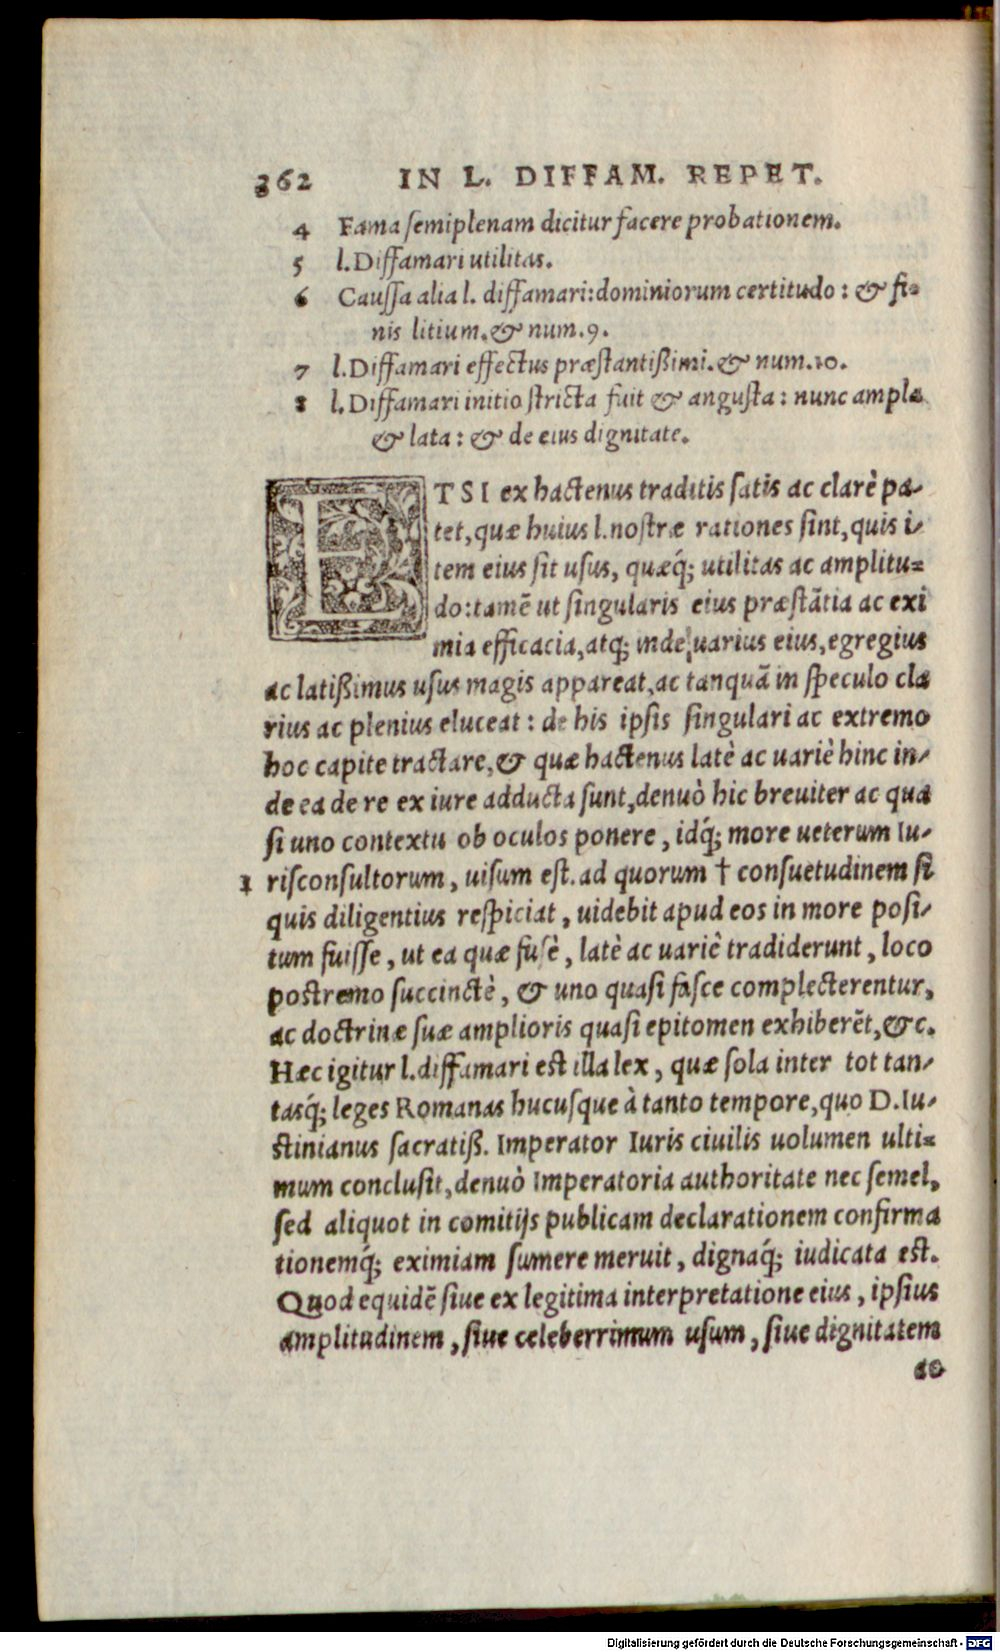 362 IN L. DIFFAM. REPET.
4 Fama ſemiplenam dicitur facere probationem.
5 l. Diffamari utilitas.
6 Cauſſa alia l. diffamari: dominiorum certitudo: & fi-
nis litium. & num. 9.
7 l. Diffamari effectus præſtantißimi. & num. 10.
8 l. Diffamari initio ſtricta fuit & anguſta: nunc ampla
& lata: & de eius dignitate.
ETSI ex hactenus traditis ſatis ac clarè pa-
tet, quæ huius l. noſtræ rationes ſint, quis i-
tem eius ſit uſus, quæq́; utilitas ac amplitu-
do: tamē ut ſingularis eius præſtãtia ac exi
mia efficacia, atq; inde uarius eius, egregius
ac latißimus uſus magis appareat, ac tanquã in ſpeculo cla
rius ac plenius eluceat: de his ipſis ſingulari ac extremo
hoc capite tractare, & quæ hactenus latè ac uariè hinc in-
de ea de re ex iure adducta ſunt, denuò hic breuiter ac qua
ſi uno contextu ob oculos ponere, idq́; more ueterum Iu-
1 riſconſultorum, uiſum eſt. ad quorum † conſuetudinem ſi
quis diligentius reſpiciat, uidebit apud eos in more poſi-
tum fuiſſe, ut ea quæ fuſè, latè ac uariè tradiderunt, loco
poſtremo ſuccinctè, & uno quaſi faſce complecterentur,
ac doctrinæ ſuæ amplioris quaſi epitomen exhiberēt, &c.
Hæc igitur l. diffamari eſt illa lex, quæ ſola inter tot tan-
tasq́; leges Romanas hucuſque à tanto tempore, quo D. Iu-
ſtinianus ſacratiß. Imperator Iuris ciuilis uolumen ulti-
mum concluſit, denuò Imperatoria authoritate nec ſemel,
ſed aliquot in comitijs publicam declarationem confirma
tionemq́; eximiam ſumere meruit, dignaq́; iudicata eſt.
Quod equidē ſiue ex legitima interpretatione eius, ipſius
amplitudinem, ſiue celeberrimum uſum, ſiue dignitatem
ac
Digitalisierung gefördert durch die Deutsche Forschungsgemeinschaft - DFG